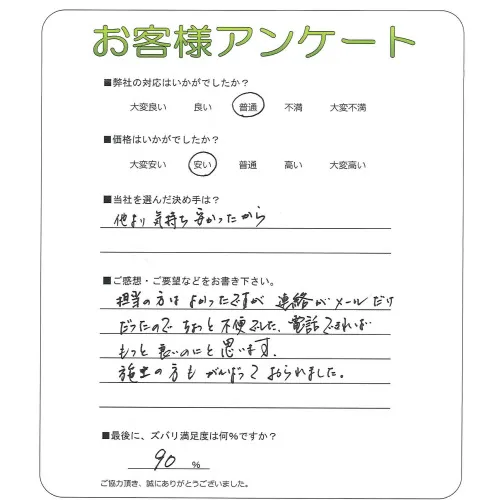 お客様アンケート
■弊社の対応はいかがでしたか？
大変良い　良い　普通　不満　大変不満
■価格はいかがでしたか？
大変安い　安い　普通　高い　大変高い
■当社を選んだ決め手は？
他より気持ち安かったから
■ご感想・ご要望などをお書き下さい。
担当の方はよかったですが 連絡がメールだけ
だったので ちょっと不便でした、電話できれば
もっと良いのにと思います.
施工の方も がんばっておられました。
■最後に、ズバリ満足度は何%ですか？
90 %
ご協力頂き、誠にありがとうございました。